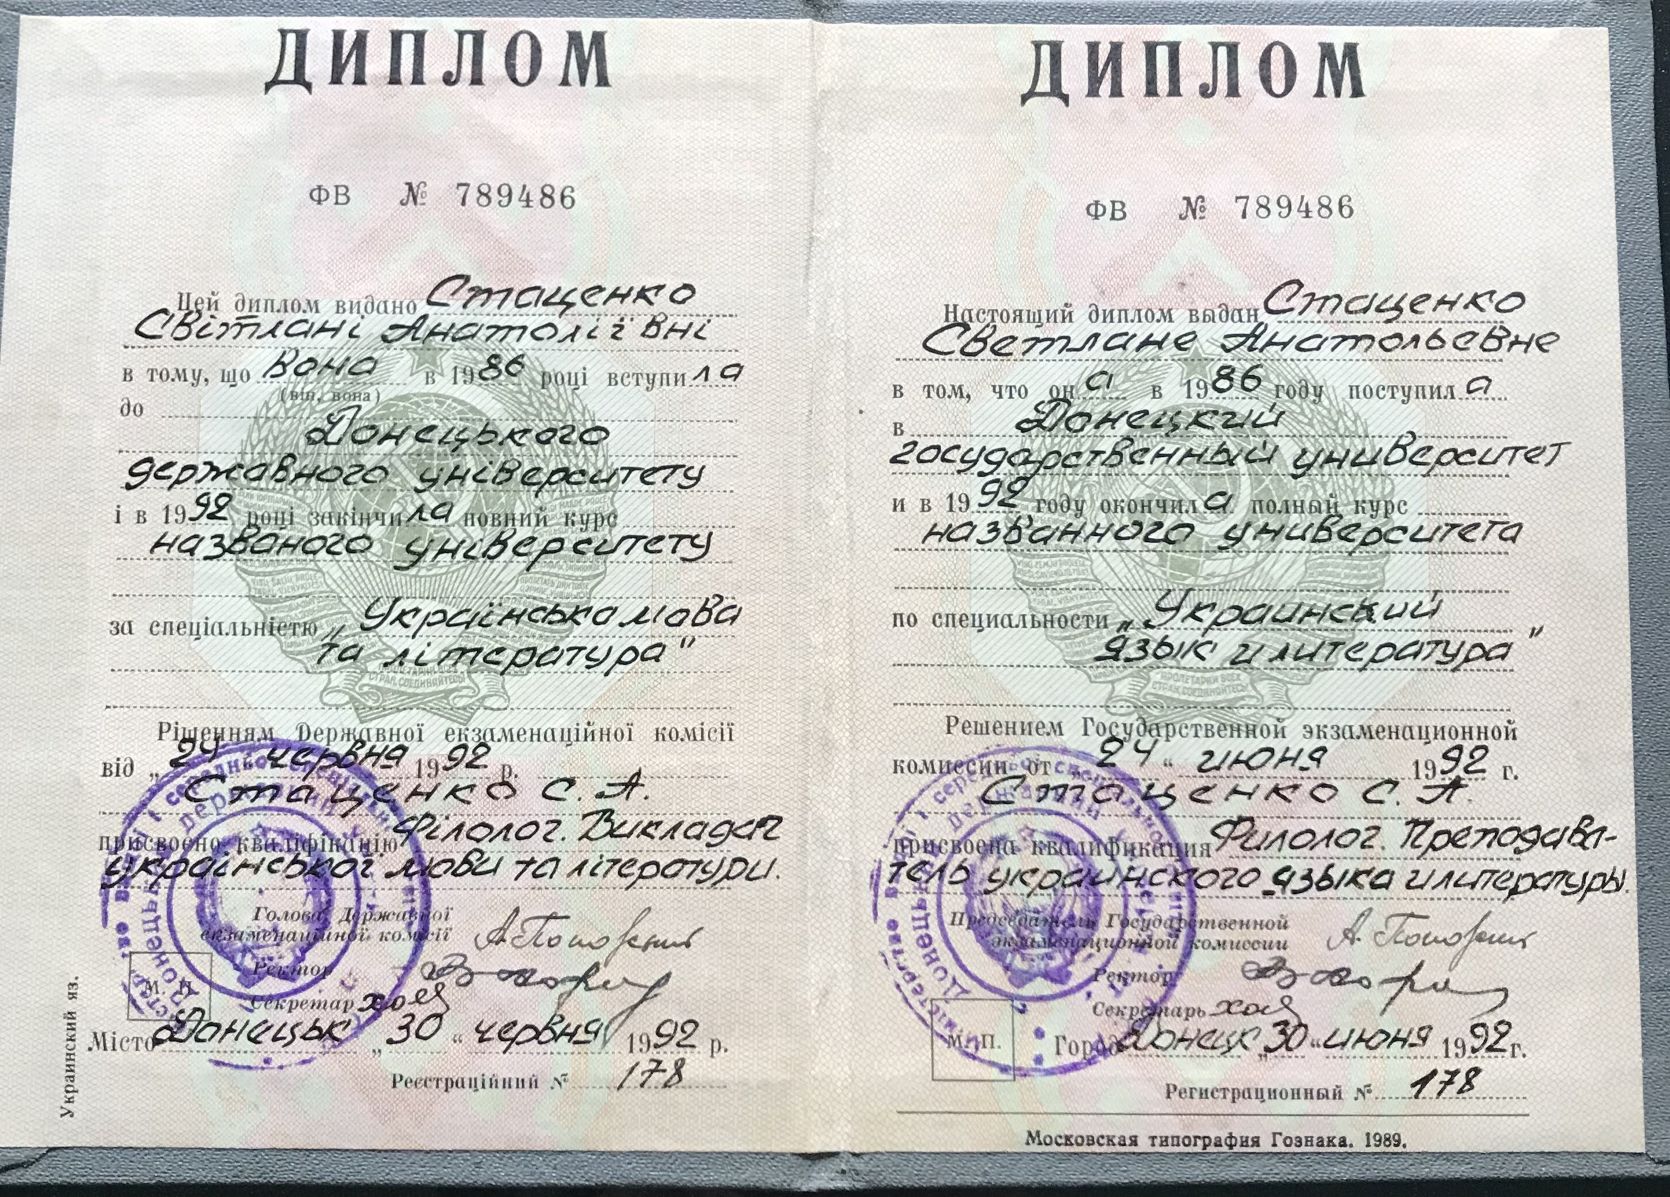 ДИПЛОМ
ФВ № 789486
Цей диплом видано Стаценко
Світлані Анатоліївні
в тому, що вона в 1986 році вступила
(він, вона)
до
Донецького
державного університету
і в 1992 році закінчила повний курс
названого університету
за спеціальністю „Українська мова
та література"
Рішенням Державної екзаменаційної комісії
від „24" червня 1992 р.
Стаценко С. А.
присвоєно кваліфікацію Філолог. Викладач
української мови та літератури.
Голова Державної
екзаменаційної комісії
Ректор
Секретар
М. П.
Місто Донецьк „30" червня 1992 р.
Реєстраційний № 178
Украинский яз.
ДИПЛОМ
ФВ № 789486
Настоящий диплом выдан Стаценко
Светлане Анатольевне
в том, что она в 1986 году поступила
в Донецкий
государственный университет
и в 1992 году окончила полный курс
названного университета
по специальности „Украинский
язык и литература"
Решением Государственной экзаменационной
комиссии от „24" июня 1992 г.
Стаценко С. А.
присвоена квалификация Филолог. Преподава-
тель украинского языка и литературы.
Председатель Государственной
экзаменационной комиссии
Ректор
Секретарь
М. П.
Город Донецк „30" июня 1992 г.
Регистрационный № 178
Московская типография Гознака. 1989.